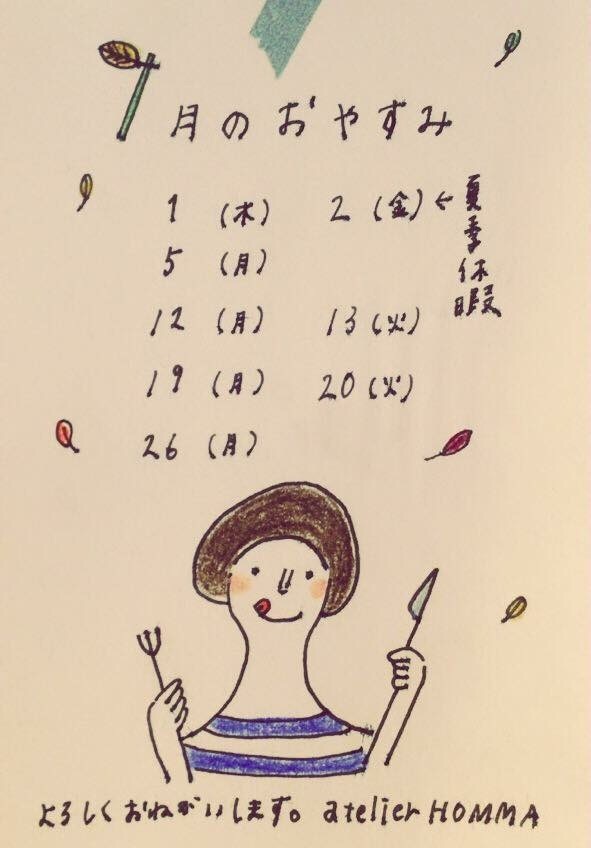 7月のおやすみ
1 (木) 2 (金) ← 夏季休暇
5 (月)
12 (月) 13 (火)
19 (月) 20 (火)
26 (月)
よろしくおねがいします。 atelier HOMMA